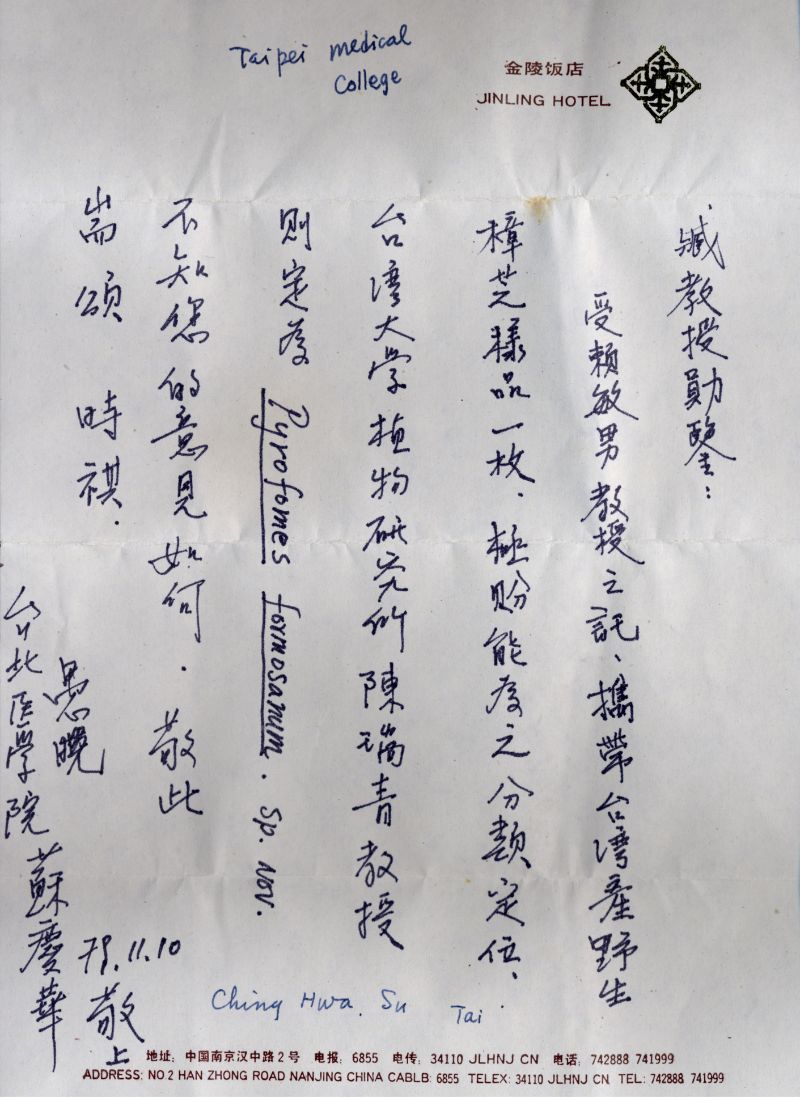 Taipei medical
College
金陵饭店
JINLING HOTEL
臧教授勛鑒：
受賴敏男教授之託、攜帶台湾產野生
樟芝樣品一枚、極盼能為之分類定位、
台湾大学植物研究所陳瑞青教授
則定為 Pyrofomes formosanum. sp. nov.
不知您的意見如何．敬此
耑頌 時祺．
愚曉
台北医学院 蘇慶華
敬上
79.11.10
Ching Hwa. Su Tai
地址: 中国南京汉中路2号 电报: 6855 电传: 34110 JLHNJ CN 电话: 742888 741999
ADDRESS: NO.2 HAN ZHONG ROAD NANJING CHINA CABLB: 6855 TELEX: 34110 JLHNJ CN. TEL: 742888 741999